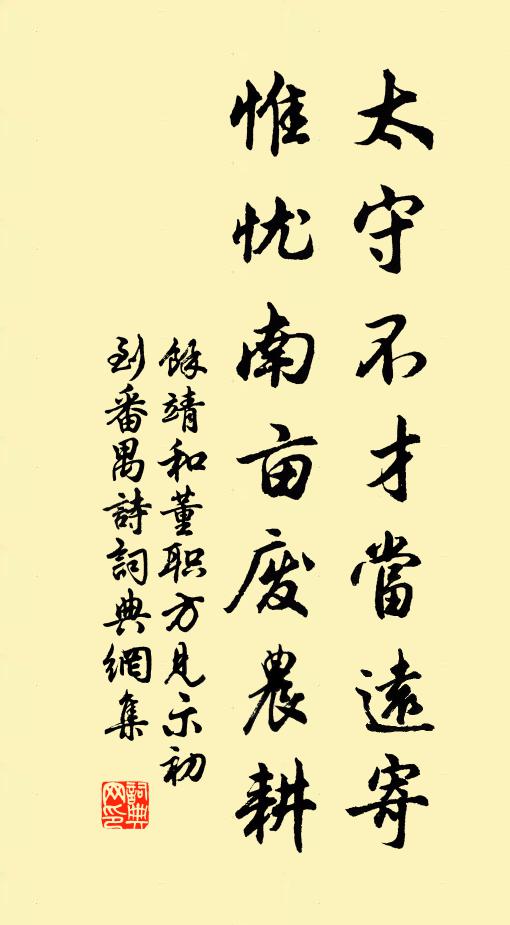 太守不才當遠寄
惟忧南亩废農耕
餘靖和董职方見示初
到番禺詩詞典網集
詞典网印